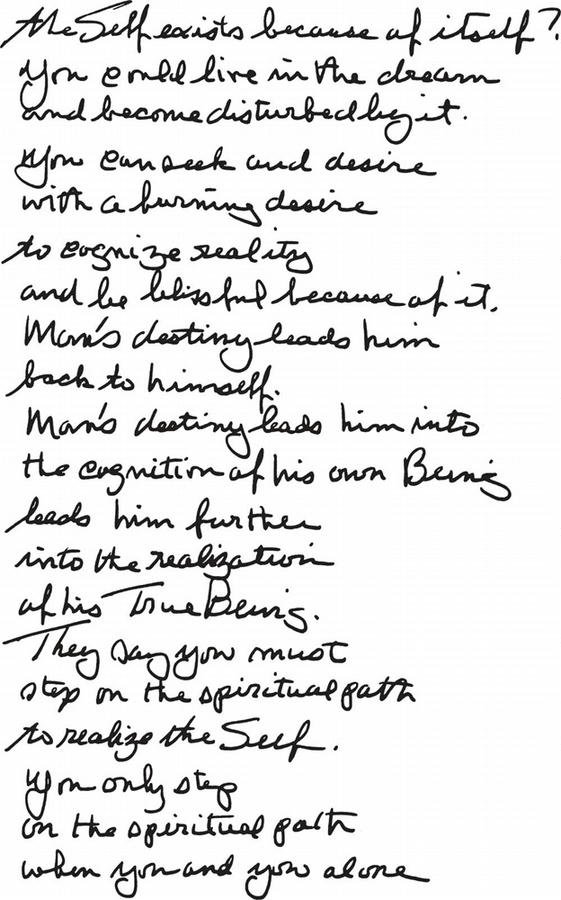 the Self exists because of itself?
You could live in the dream
and become disturbed by it.
You can seek and desire
with a burning desire
to cognize reality
and be blissful because of it.
Man's destiny leads him
back to himself.
Man's destiny leads him into
the cognition of his own Being
leads him further
into the realization
of his True Being.
They say you must
step on the spiritual path
to realize the Self.
You only step
on the spiritual path
when you and you alone